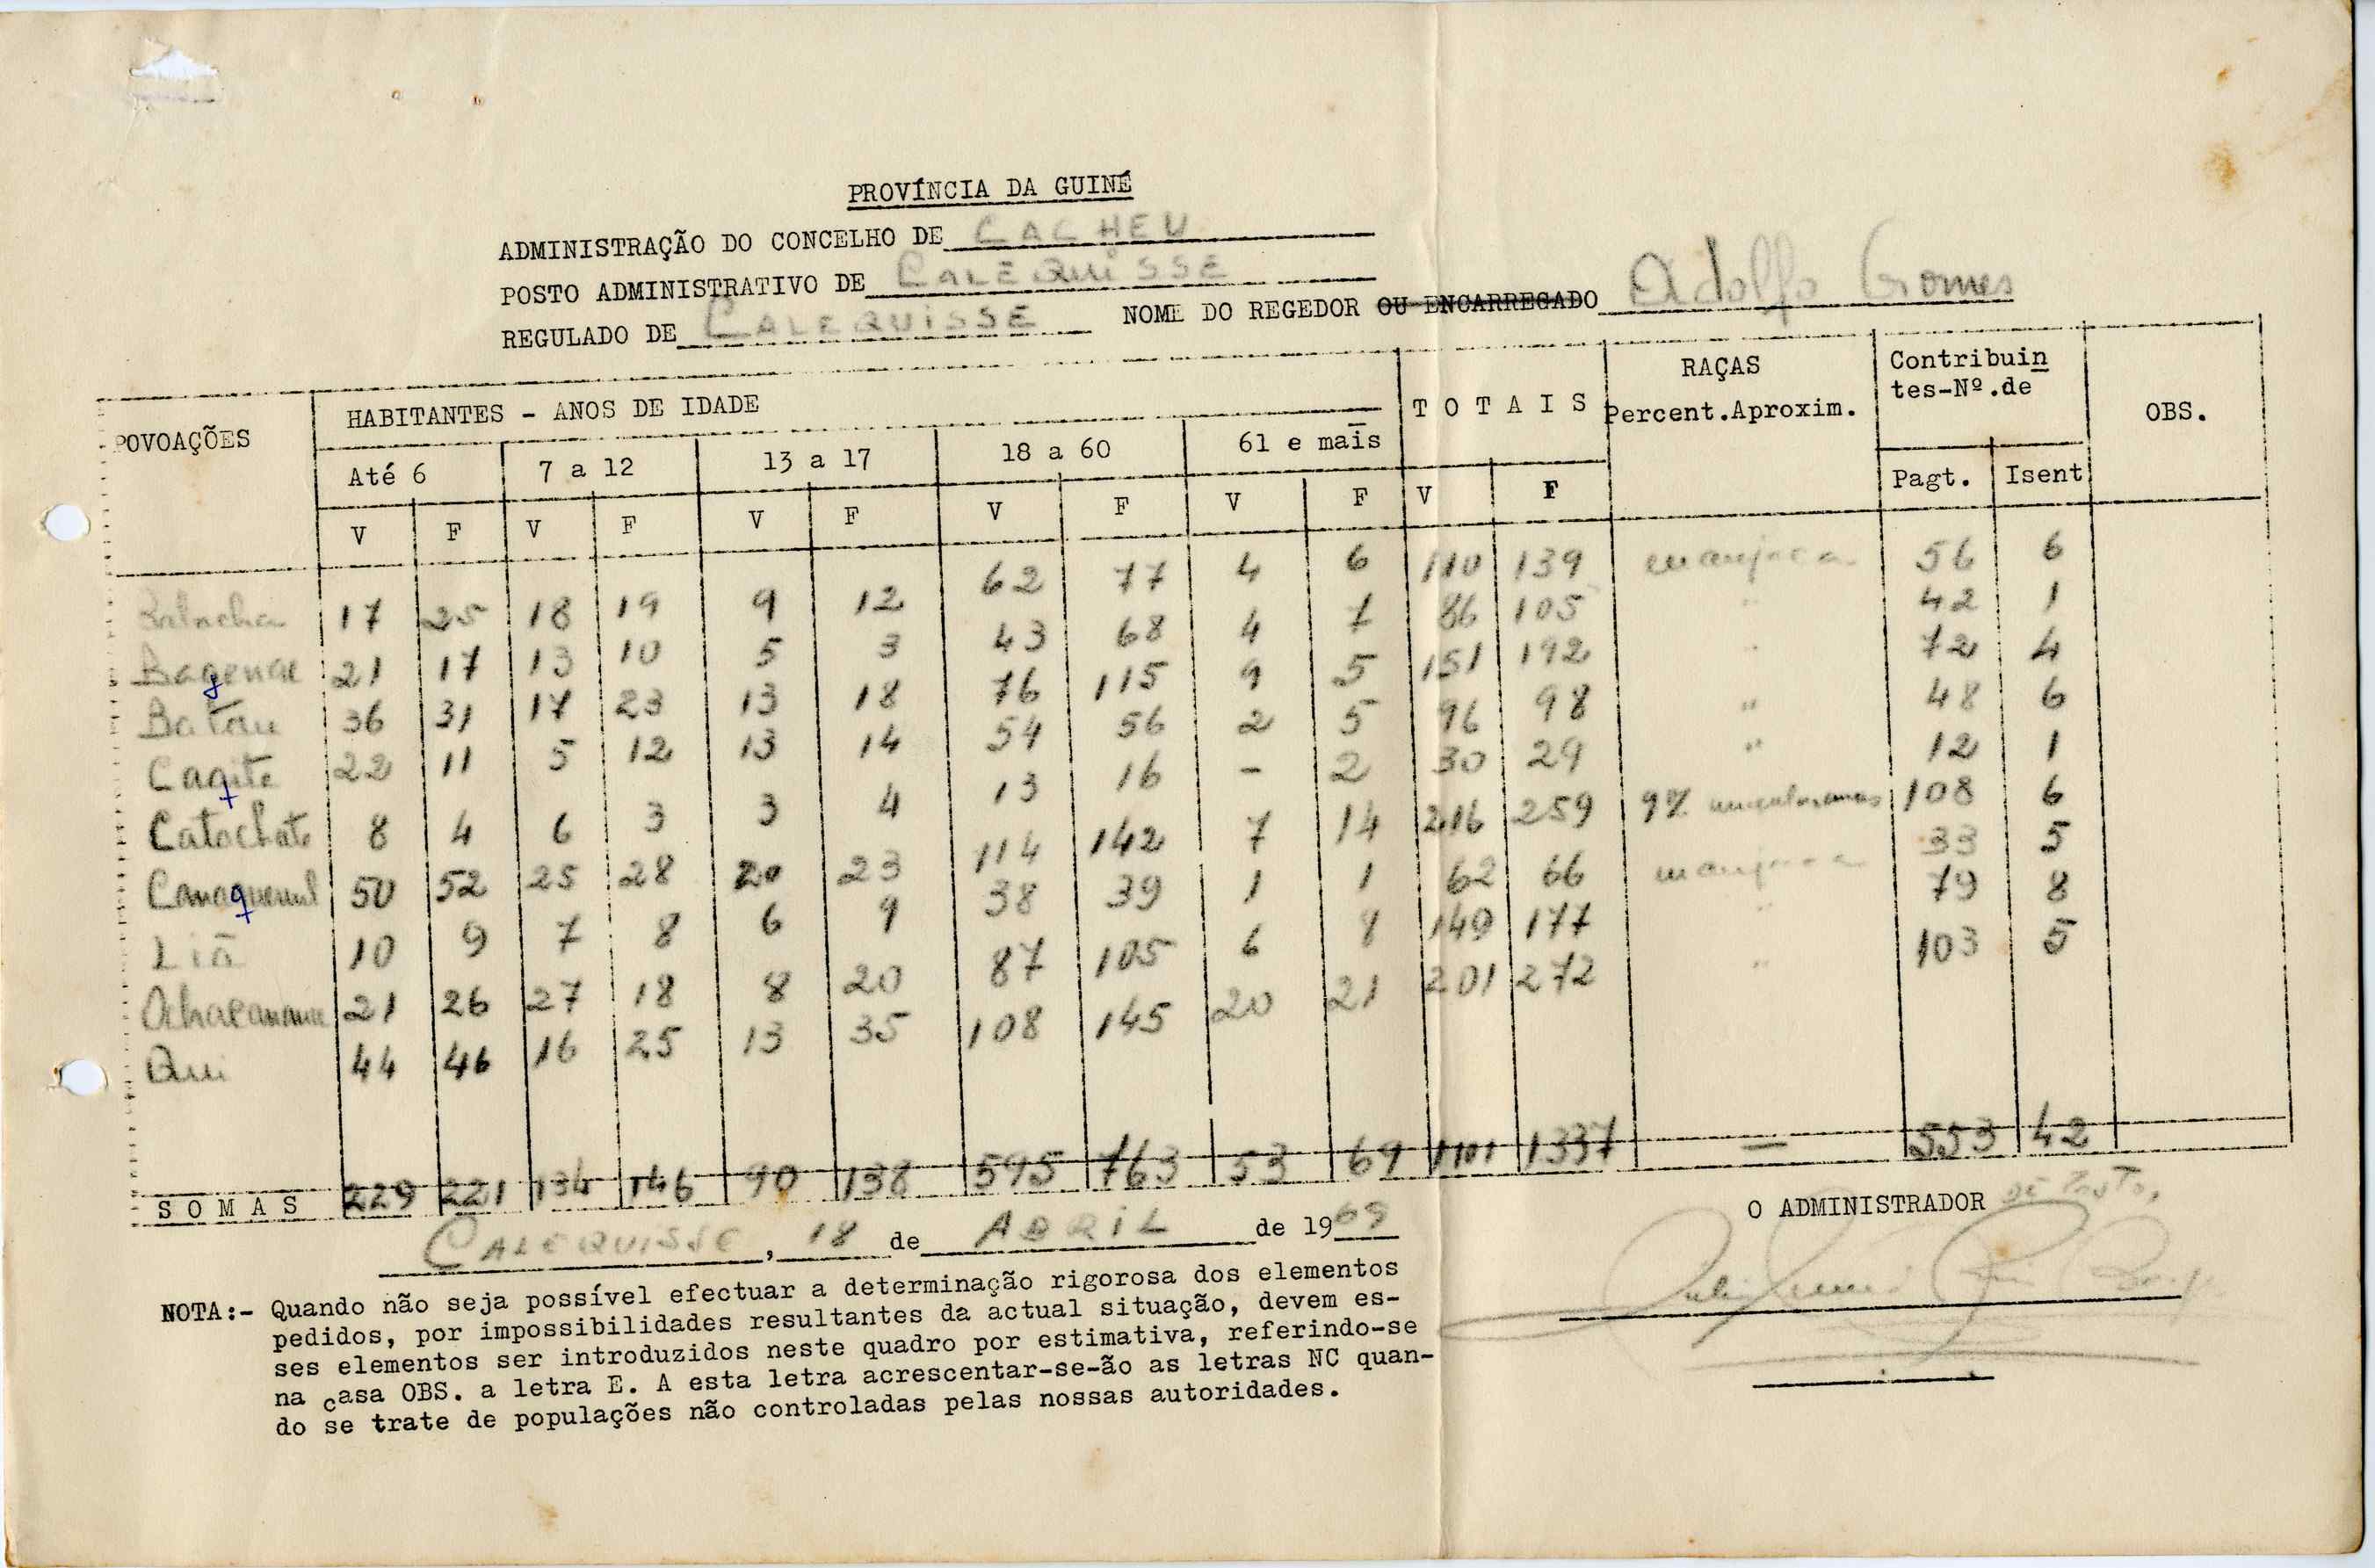 PROVÍNCIA DA GUINÉ
ADMINISTRAÇÃO DO CONCELHO DE CACHEU
POSTO ADMINISTRATIVO DE CALEQUISSE
REGULADO DE CALEQUISSE NOME DO REGEDOR OU ENCARREGADO Adolfo Gomes
POVOAÇÕES HABITANTES - ANOS DE IDADE TOTAIS RAÇAS Percent.Aproxim. Contribuin
tes-Nº.de OBS.
Até 6 7 a 12 13 a 17 18 a 60 61 e mais Pagt. Isent
V F V F V F V F V F V F
17 25 18 19 9 12 62 77 4 6 110 139 manjaca 56 6
21 17 13 10 5 3 43 68 4 7 86 105 " 42 1
Batau 36 31 17 23 13 18 76 115 9 5 151 192 " 72 4
Caqite 22 11 5 12 13 14 54 56 2 5 96 98 " 48 6
Catochate 8 4 6 3 3 4 13 16 - 2 30 29 " 12 1
50 52 25 28 20 23 114 142 7 14 216 259 9% 108 6
Liã 10 9 7 8 6 9 38 39 1 1 62 66 manjaca 33 5
21 26 27 18 8 20 87 105 6 8 149 177 " 79 8
Qui 44 46 16 25 13 35 108 145 20 21 201 272 " 103 5
SOMAS 229 221 134 146 90 138 595 763 53 69 1101 1337 — 553 42
CALEQUISSE, 18 de ABRIL de 1969
O ADMINISTRADOR DE POSTO,
NOTA:- Quando não seja possível efectuar a determinação rigorosa dos elementos
pedidos, por impossibilidades resultantes da actual situação, devem es-
ses elementos ser introduzidos neste quadro por estimativa, referindo-se
na casa OBS. a letra E. A esta letra acrescentar-se-ão as letras NC quan-
do se trate de populações não controladas pelas nossas autoridades.